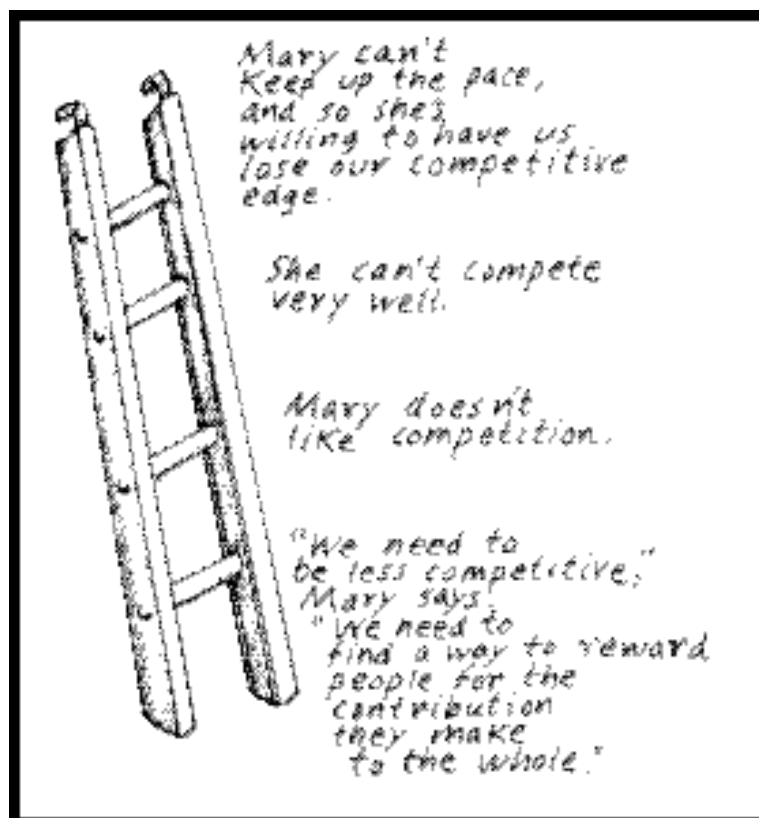 Mary can't
Keep up the pace,
and so she's
willing to have us
lose our competitive
edge.
She can't compete
very well.
Mary doesn't
like competition.
"We need to
be less competitive,"
Mary says.
"We need to
find a way to reward
people for the
contribution
they make
to the whole."